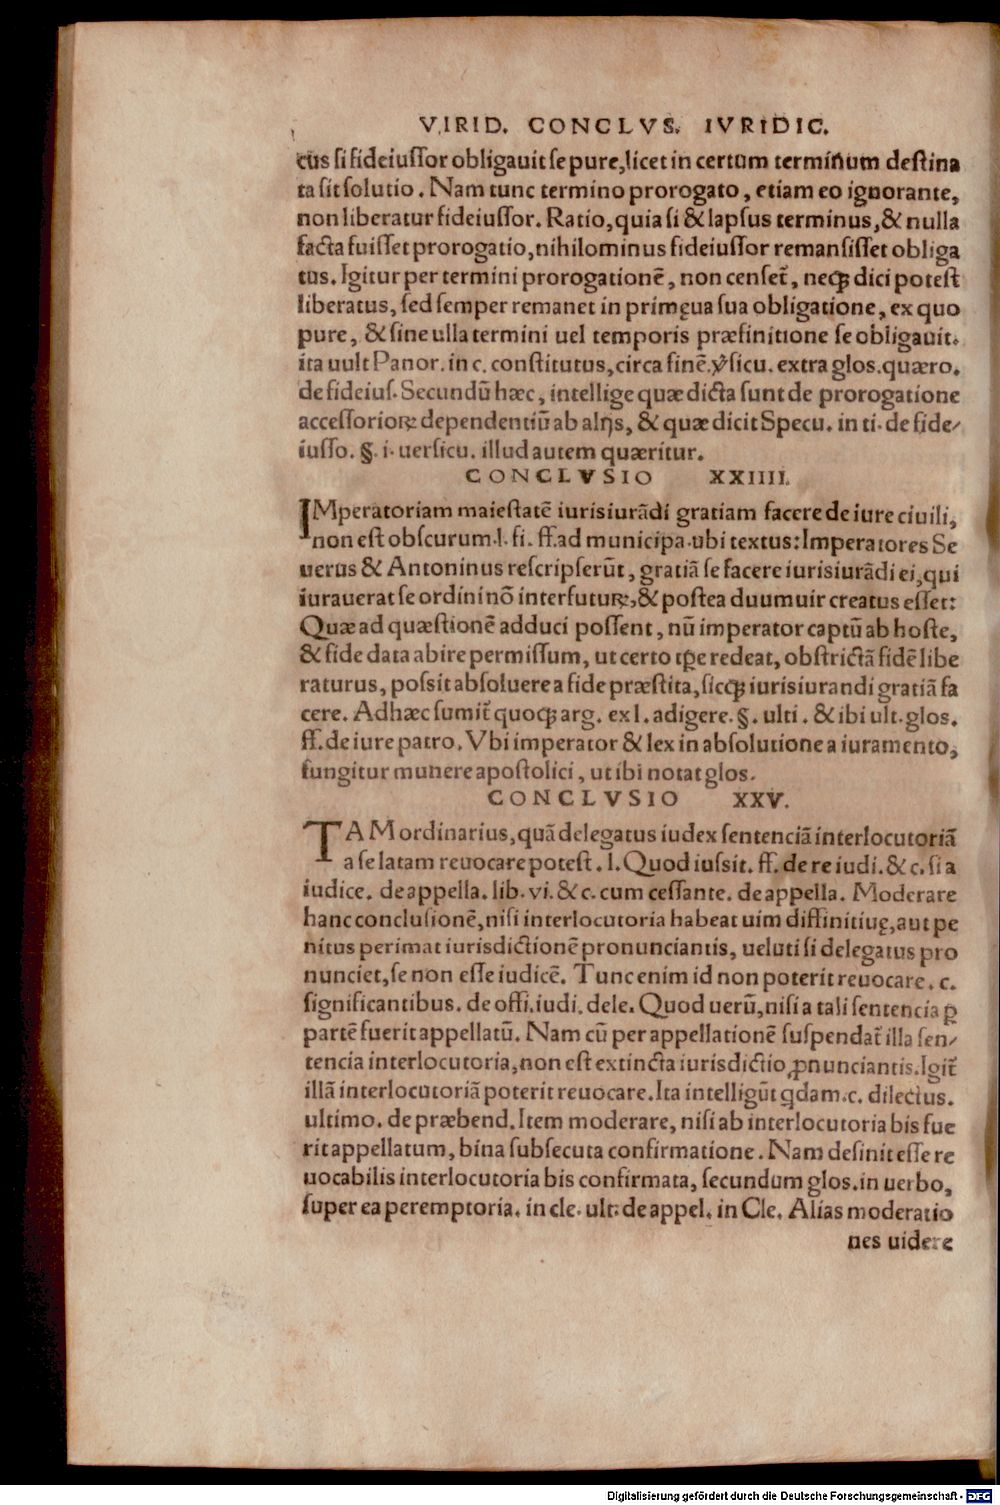 VIRID. CONCLVS. IVRIDIC.
cus si fideiussor obligauit se pure, licet in certum terminum destina
ta sit solutio. Nam tunc termino prorogato, etiam eo ignorante,
non liberatur fideiussor. Ratio, quia si & lapsus terminus, & nulla
facta fuisset prorogatio, nihilominus fideiussor remansisset obliga
tus. Igitur per termini prorogationē, non censet᷑, neqꝫ dici potest
liberatus, sed semper remanet in primęua sua obligatione, ex quo
pure, & sine ulla termini uel temporis præfinitione se obligauit.
ita uult Panor. in c. constitutus, circa finē. ꝟsicu. extra glos. quæro.
de fideius. Secundū hæc, intellige quæ dicta sunt de prorogatione
accessorioꝝ dependentiū ab alijs, & quæ dicit Specu. in ti. de fide⸗
iusso. §. i. uersicu. illud autem quæritur.
CONCLVSIO XXIIII.
IMperatoriam maiestatē iurisiurādi gratiam facere de iure ciuili,
non est obscurum. l. fi. ff. ad municipa. ubi textus: Imperatores Se
uerus & Antoninus rescripserūt, gratiā se facere iurisiurādi ei, qui
iurauerat se ordini nō interfuturꝝ, & postea duumuir creatus esset:
Quæ ad quæstionē adduci possent, nū imperator captū ab hoste,
& fide data abire permissum, ut certo tꝑe redeat, obstrictā fidē libe
raturus, possit absoluere a fide præstita, sicqꝫ iurisiurandi gratiā fa
cere. Ad hæc sumit᷑ quoqꝫ arg. ex l. adigere. §. ulti. & ibi ult. glos.
ff. de iure patro. Vbi imperator & lex in absolutione a iuramento,
fungitur munere apostolici, ut ibi notat glos.
CONCLVSIO XXV.
TAM ordinarius, quā delegatus iudex sentenciā interlocutoriā
a se latam reuocare potest. l. Quod iussit. ff. de re iudi. & c. si a
iudice. de appella. lib. vi. & c. cum cessante. de appella. Moderare
hanc conclusionē, nisi interlocutoria habeat uim diffinitiuę, aut pe
nitus perimat iurisdictionē pronunciantis, ueluti si delegatus pro
nunciet, se non esse iudicē. Tunc enim id non poterit reuocare. c.
significantibus. de offi. iudi. dele. Quod uerū, nisi a tali sentencia ꝑ
partē fuerit appellatū. Nam cū per appellationē suspendat᷑ illa sen⸗
tencia interlocutoria, non est extincta iurisdictio ꝓnunciantis. Igit᷑
illā interlocutoriā poterit reuocare. Ita intelligūt qdam. c. dilectus.
ultimo. de præbend. Item moderare, nisi ab interlocutoria bis fue
rit appellatum, bina subsecuta confirmatione. Nam desinit esse re
uocabilis interlocutoria bis confirmata, secundum glos. in uerbo,
super ea peremptoria. in cle. ult. de appel. in Cle. Alias moderatio
nes uidere
Digitalisierung gefördert durch die Deutsche Forschungsgemeinschaft - DFG